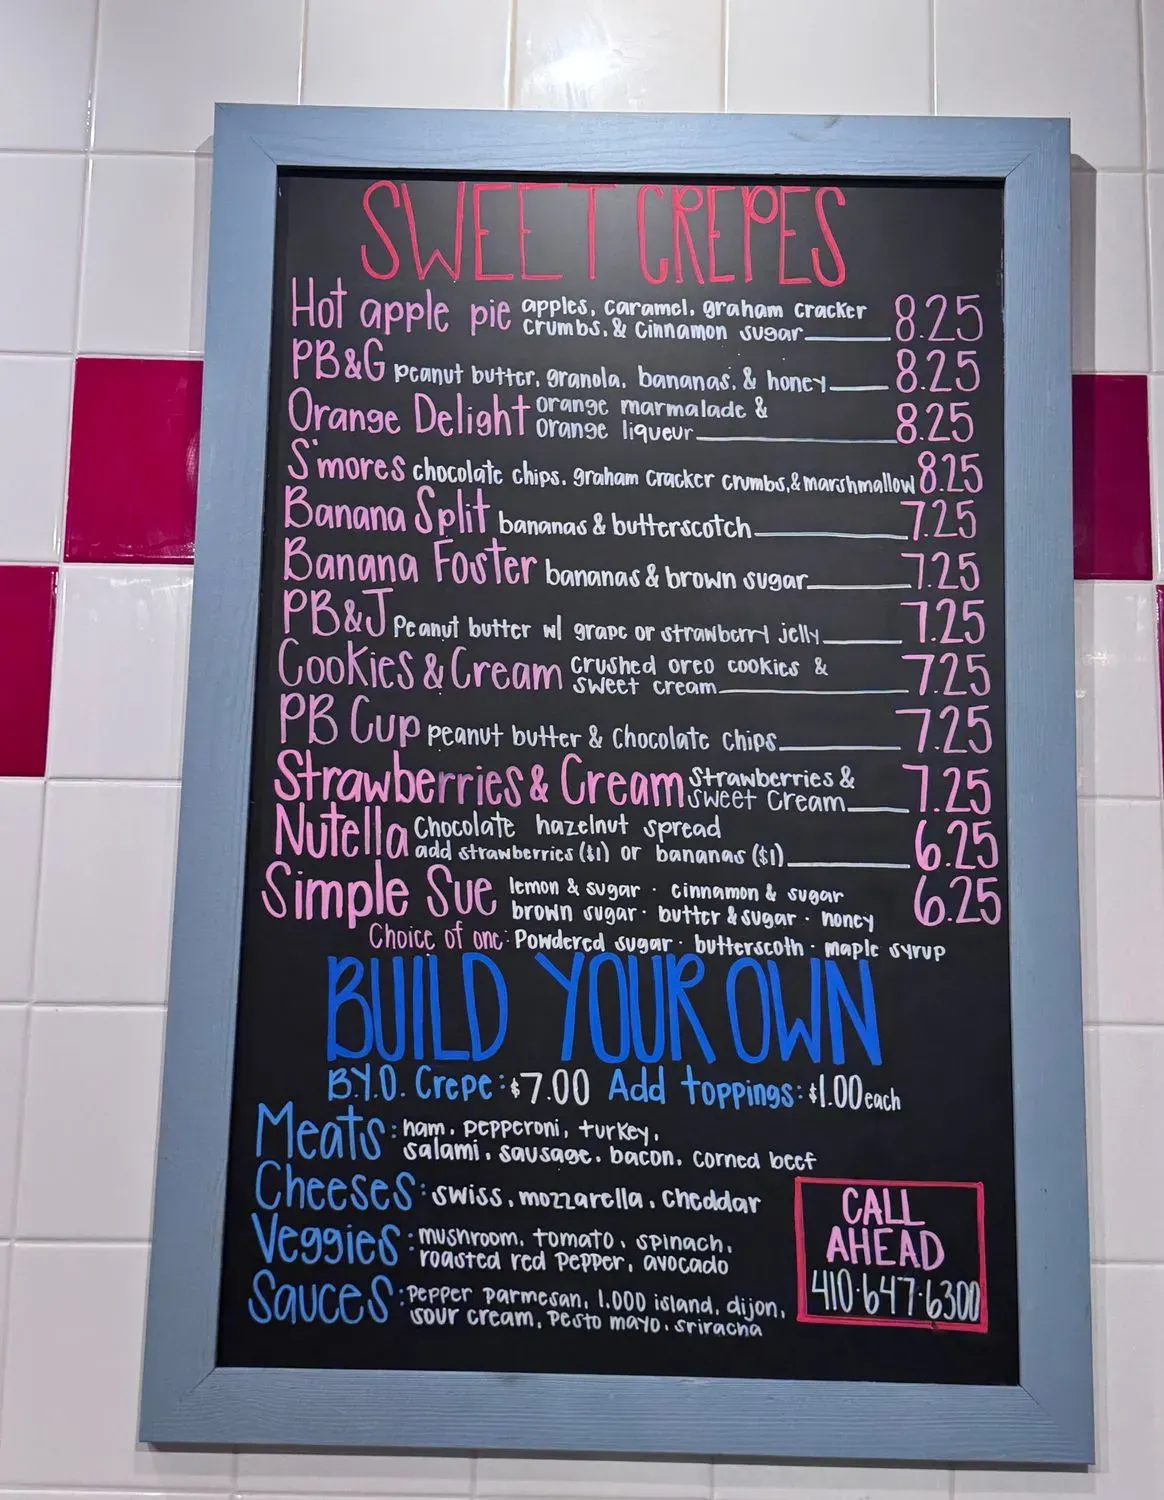 SWEET CREPES
Hot apple pie apples, caramel, graham cracker
crumbs, & cinnamon sugar 8.25
PB&G peanut butter, granola, bananas, & honey 8.25
Orange Delight orange marmalade &
orange liqueur 8.25
S'mores chocolate chips, graham cracker crumbs, & marshmallow 8.25
Banana Split bananas & butterscotch 7.25
Banana Foster bananas & brown sugar 7.25
PB&J Peanut butter w/ grape or strawberry jelly 7.25
Cookies & Cream crushed oreo cookies &
sweet cream 7.25
PB Cup peanut butter & chocolate chips 7.25
Strawberries & Cream Strawberries &
sweet cream 7.25
Nutella Chocolate hazelnut spread
add strawberries ($1) or bananas ($1) 6.25
Simple Sue lemon & sugar · cinnamon & sugar
brown sugar · butter & sugar · honey 6.25
Choice of one: Powdered sugar · butterscoth · maple syrup
BUILD YOUR OWN
B.Y.O. Crepe: $7.00 Add toppings: $1.00 each
Meats: ham, pepperoni, turkey,
salami, sausage, bacon, corned beef
Cheeses: swiss, mozzarella, cheddar
Veggies: mushroom, tomato, spinach,
roasted red pepper, avocado
Sauces: pepper parmesan, 1,000 island, dijon,
sour cream, pesto mayo, sriracha
CALL
AHEAD
410-647-6300